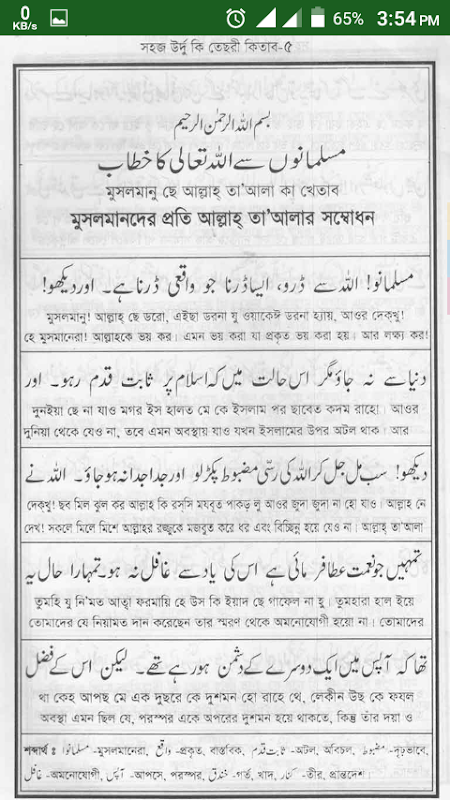 0
KB/s
65%
3:54 PM
সহজ উর্দু কি তেছরী কিতাব-৫
بسم الله الرحمن الرحيم
مسلمانوں سے اللہ تعالی کا خطاب
মুসলমানু ছে আল্লাহ্ তা'আলা কা খেতাব
মুসলমানদের প্রতি আল্লাহ্ তা'আলার সম্বোধন
مسلمانو! اللہ سے ڈرو، ایسا ڈرنا جو واقعی ڈرنا ہے۔ اور دیکھو!
মুসলমানু! আল্লাহ্ ছে ডরো, এইছা ডরনা যু ওয়াকেঈ ডরনা হ্যায়, আওর দেক্খু!
হে মুসলমানেরা! আল্লাহকে ভয় কর। এমন ভয় করা যা প্রকৃত ভয় করা হয়। আর লক্ষ্য কর!
دنیا سے نہ جاؤ مگر اس حالت میں کہ اسلام پر ثابت قدم رہو۔ اور
দুনইয়া ছে না যাও মগর ইস হালত মে কে ইসলাম পর ছাবেত কদম রাহো। আওর
দুনিয়া থেকে যেও না, তবে এমন অবস্থায় যাও যখন ইসলামের উপর অটল থাক। আর
دیکھو! سب مل جل کر اللہ کی رسّی مضبوط پکڑ لو اور جدا جدا نہ ہو جاؤ۔ اللہ نے
দেক্খু! ছব মিল ঝুল কর আল্লাহ কি রস্সি মযবূত পাকড় লূ আওর জুদা জুদা না হো যাও। আল্লাহ্ নে
দেখ! সকলে মিলে মিশে আল্লাহর রজ্জুকে মজবুত করে ধর এবং বিচ্ছিন্ন হয়ে যেও না। আল্লাহ্ তা'আলা
تمہیں جو نعمت عطا فرمائی ہے اس کی یاد سے غافل نہ ہو۔ تمہارا حال یہ
তুমহি যু নি'মত আত্বা ফরমায়ি হে উস কি ইয়াদ ছে গাফেল না হু। তুমহারা হাল ইয়ে
তোমাদের যে নিয়ামত দান করেছেন তার স্মরণ থেকে অমনোযোগী হয়ো না। তোমাদের
تھا کہ آپس میں ایک دوسرے کے دشمن ہو رہے تھے۔ لیکن اس کے فضل
থা কেহ আপছ মে এক দুছরে কে দুশমন হো রাহে থে, লেকীন উছ কে ফযল
অবস্থা এমন ছিল যে, পরস্পর একে অপরের দুশমন হয়ে থাকতে, কিন্তু তাঁর দয়া ও
শব্দার্থ ঃ مسلمانو -মুসলমানেরা, واقعی -প্রকৃত, বাস্তবিক, ثابت قدم -অটল, অবিচল, مضبوط -দৃঢ়ভাবে,
غافل -অমনোযোগী, آپس -আপসে, পরস্পর, خندق -গর্ত, খাদ, کنار -তীর, প্রান্তদেশ।